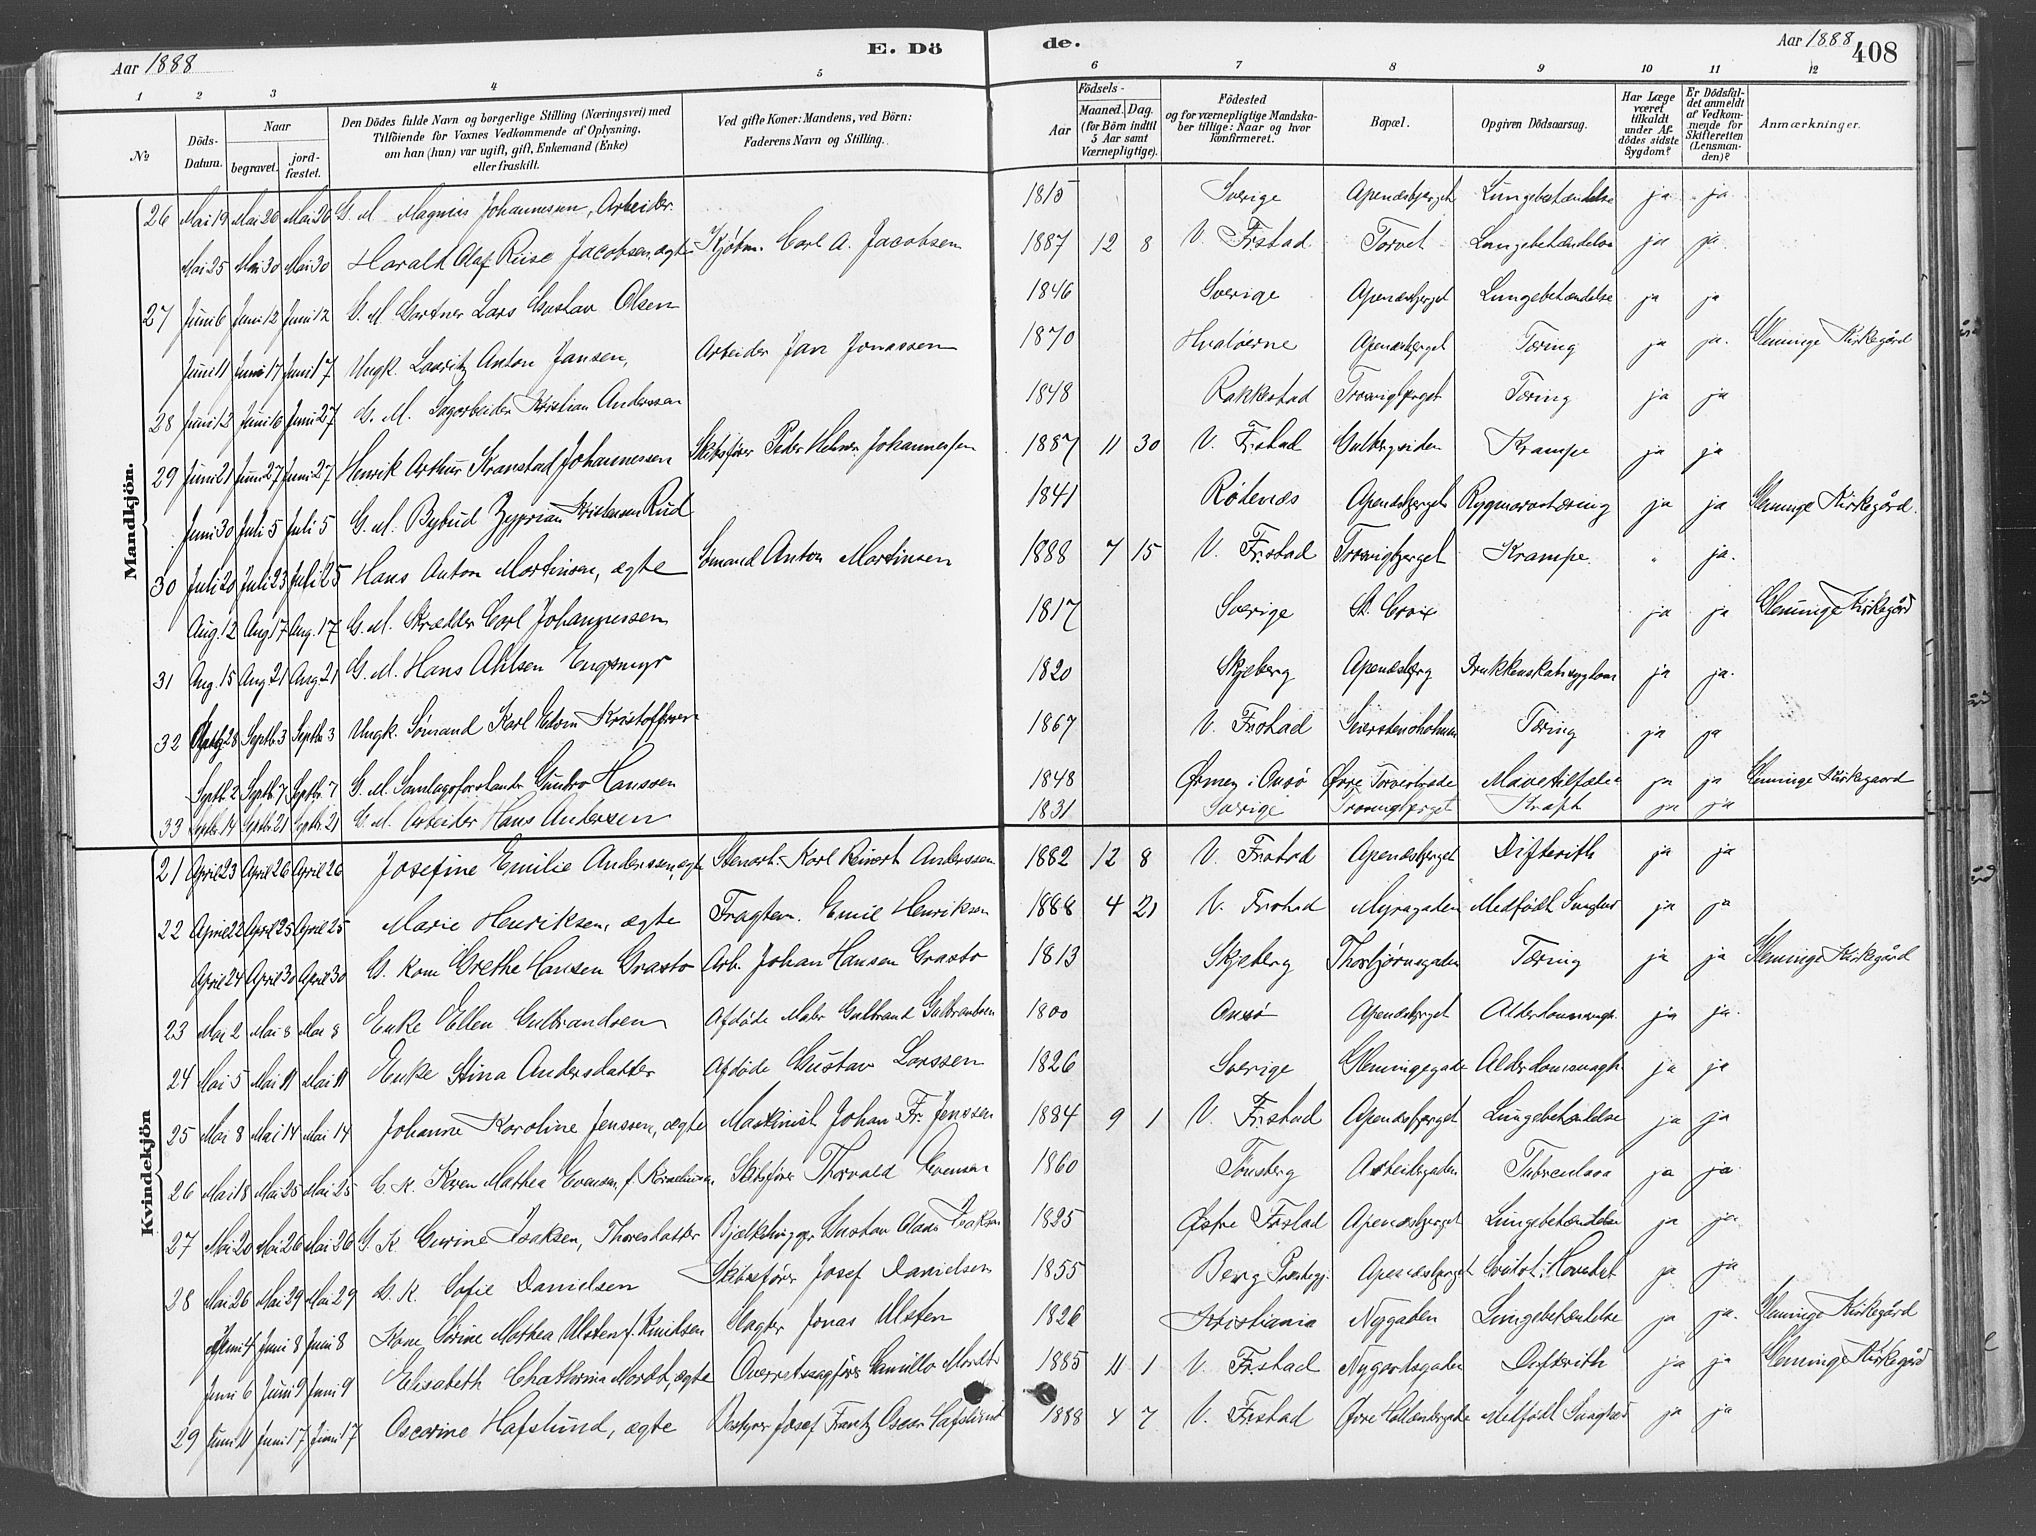 Aar 1888 E. Dö de. Aar 1888 408
1 2 3 4 5 6 7 8 9 10 11 12
No Döds-Datum. Naar begravet. jordfæstet. Den Dödes fulde Navn og borgerlige Stilling (Næringsvei) med Tilföiende for Voxnes Vedkommende af Oplysning, om han (hun) var ugift, gift, Enkemand (Enke) eller fraskilt. Ved gifte Koner: Mandens, ved Börn: Faderens Navn og Stilling. Födsels- Aar Maaned. Dag. (for Börn indtil 5 Aar samt Værnepligtige). Födested og for værnepligtige Mandskaber tillige: Naar og hvor konfirmeret. Bopæl. Opgiven Dödsaarsag. Har Læge været tilkaldt under Afdödes sidste Sygdom? Er Dödsfaldet anmeldt af Vedkommende for Skifteretten (Lensmanden)? Anmærkninger.
Mandkjön.
26 Mai 19 Mai 26 Mai 26 G. M. Magnus Johannessen, Arbeider 1815 Sverige Apenæsbjerget Lungebetændelse ja ja
Mai 25 Mai 30 Mai 30 Harald Olaf Riise Jacobsen, ægte Kjøbm. Carl A. Jacobsen 1887 12 8 V. Frstad Torvet Lungebetændelse ja ja
27 Juni 6 Juni 12 Juni 12 G. M. Gartner Lars Gustav Olsen 1846 Sverige Apenæsbjerget Lungebetændelse ja ja
Juni 11 Juni 17 Juni 17 Ungk. Lauritz Anton Jansen, Arbeider Jan Jonassen 1870 Hvaløerne Apenæsbjerget Tæring ja ja. Glemminge Kirkegård
28 Juni 12 Juni 16 Juni 27 G. M. Sagarbeider Kristian Anderssen 1848 Rakkestad Trosvigbjerget Tæring ja ja
29 Juni 21 Juni 27 Juni 27 Henrik Arthur Kranstad Johannessen Skibsfører Peder Helmer Johannessen 1887 11 30 V. Frstad Gulbergsiden Krampe ja ja
Juni 30 Juli 5 Juli 5 G. M. Bybud Zyprian Kristensen Rud 1841 Rødenæs Apenæsbjerget Rygmarvstæring ja ja Glemminge Kirkegård.
30 Juli 20 Juli 23 Juli 25 Hans Anton Martinsen, ægte Sømand Anton Martinsen 1888 7 15 V. Frstad Trosvigbjerget Krampe. " ja.
Aug. 12 Aug 17 Aug. 17 G. M. Skrædder Carl Johannessen 1817 Sverige St. Croix ja ja Glemminge Kirkegård
31 Aug. 15 Aug 21 Aug 21 G. M. Hans Ahlsen Engsmyr 1820 Skjeberg Apenæsbjerg Drukkenskabssygdom ja ja.
32 Aug 28 Septb. 3 Septbr 3 Ungk. Sømand Karl Edvin Kristoffersen 1867 V. Frstad Tæring ja ja
Septb. 2 Septb. 7 Septbr. 7 G. M. Samlagsforstander Gundro Hanssen 1848 Ørmen i Onsø Øvre Torvestrade ja ja Glemminge Kirkegaard
33 Septbr. 14 Septbr. 21 Septbr. 21 G. M. Arbeider Hans Andersen 1831 Sverige Trosvigbjerget Kræft ja ja
Kvindekjön
21 April 23 April 26 April 26 Josefine Emilie Anderssen, ægte Stenarb. Karl Reinert Anderssen 1882 12 8 V. Frstad Apenæsbjerget Difterith ja ja
22 April 22 April 25 April 25 Marie Henriksen, ægte Fragtem. Emil Henriksen 1888 4 21 V. Frstad Myragaden Medfødt Svaghed ja ja
April 24 April 30 April 30 G. Kone Grethe Hansen Graxto Arb. Johan Hansen Graxto 1813 Skjeberg Thorbjørnsgaden Tæring ja ja Glemminge Kirkegård
23 Mai 2 Mai 8 Mai 8 Enke Ellen Gulbrandsen Afdøde Mator Gulbrand Gulbrandsen 1800 Onsø Apenæsbjerget Alderdomssvagh. ja ja.
24 Mai 5 Mai 11 Mai 11 Enke Stina Andersdatter Afdøde Gustav Larssen 1826 Sverige Glemmingegade Alderdomssvagh ja ja
25 Mai 8 Mai 14 Mai 14 Johanne Karoline Jenssen, ægte Maskinist Johan Fr. Jenssen 1884 9 1 V. Frstad Apenæsbjerget Lungebetændelse ja ja
26 Mai 18 Mai 25 Mai 25 G. K. Karen Mathea Evensen, f. Kornelius Skibsfører Thorvald Evensen 1860 Tønsberg Arbeidergaden Tuberculose ja ja.
27 Mai 20 Mai 26 Mai 26 G. K. Gurine Isaksen, Thoresdatter Bjelkehugger Gustav Claus Isaksen 1825 Østre Frstad Apenæsbjerget Lungebetændelse ja ja
28 Mai 26 Mai 29 Mai 29 G. K. Sofie Danielsen Skibsfører Josef Danielsen 1855 Berg Prestegj. Apenæsbjerget i Hovedet ja ja
Juni 4 Juni 8 Juni 8 Kone Sørine Mathea Ulsten f. Knudsen Slagter Jonas Ulsten 1826 Kristiania Nygaden Lungebetændelse ja ja. Glemminge Kirkegård
Juni 6 Juni 9 Juni 9 Elisabeth Chathrina Mordt, ægte Overretssagfører Camillo Mordt 1885 11 1 V. Frstad Nygardsgaden Difterith ja ja Glemminge Kirkegård
29 Juni 11 Juni 17 Juni 17 Oscarine Hafslund, ægte Bestyrer Josef Frantz Oscar Hafslund 1888 4 7 V. Frstad Øvre Medfødt Svaghed ja ja